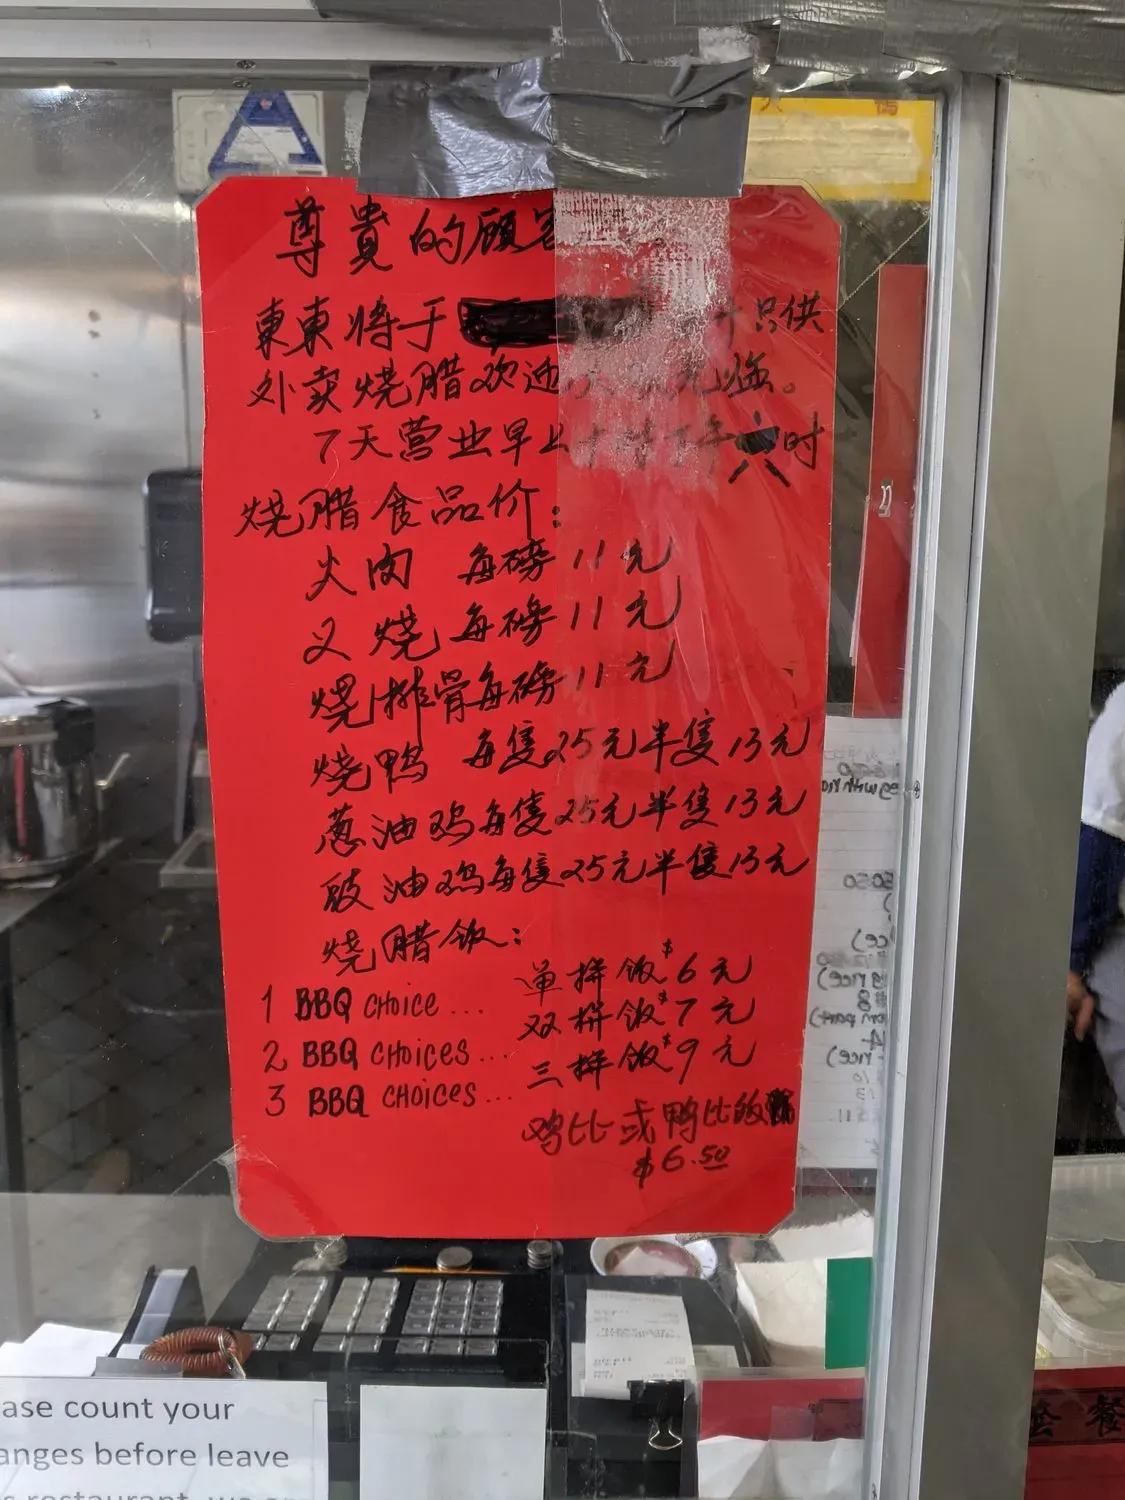 尊貴的顧客
東東将于
只供
外卖烧腊欢迎
光臨。
7天营业早上
六时
烧腊食品价：
火肉 每磅11元
叉烧每磅11元
烧排骨每磅11元
烧鸭 每隻25元半隻13元
葱油鸡每隻25元半隻13元
豉油鸡每隻25元半隻13元
烧腊饭：
1 BBQ CHOICE ... 单拼饭$6元
2 BBQ CHOICES... 双拼饭$7元
3 BBQ CHOICES... 三拼饭$9元
鸡比或鸭比饭
$6.50
ase count your
anges before leave
restaurant
套餐